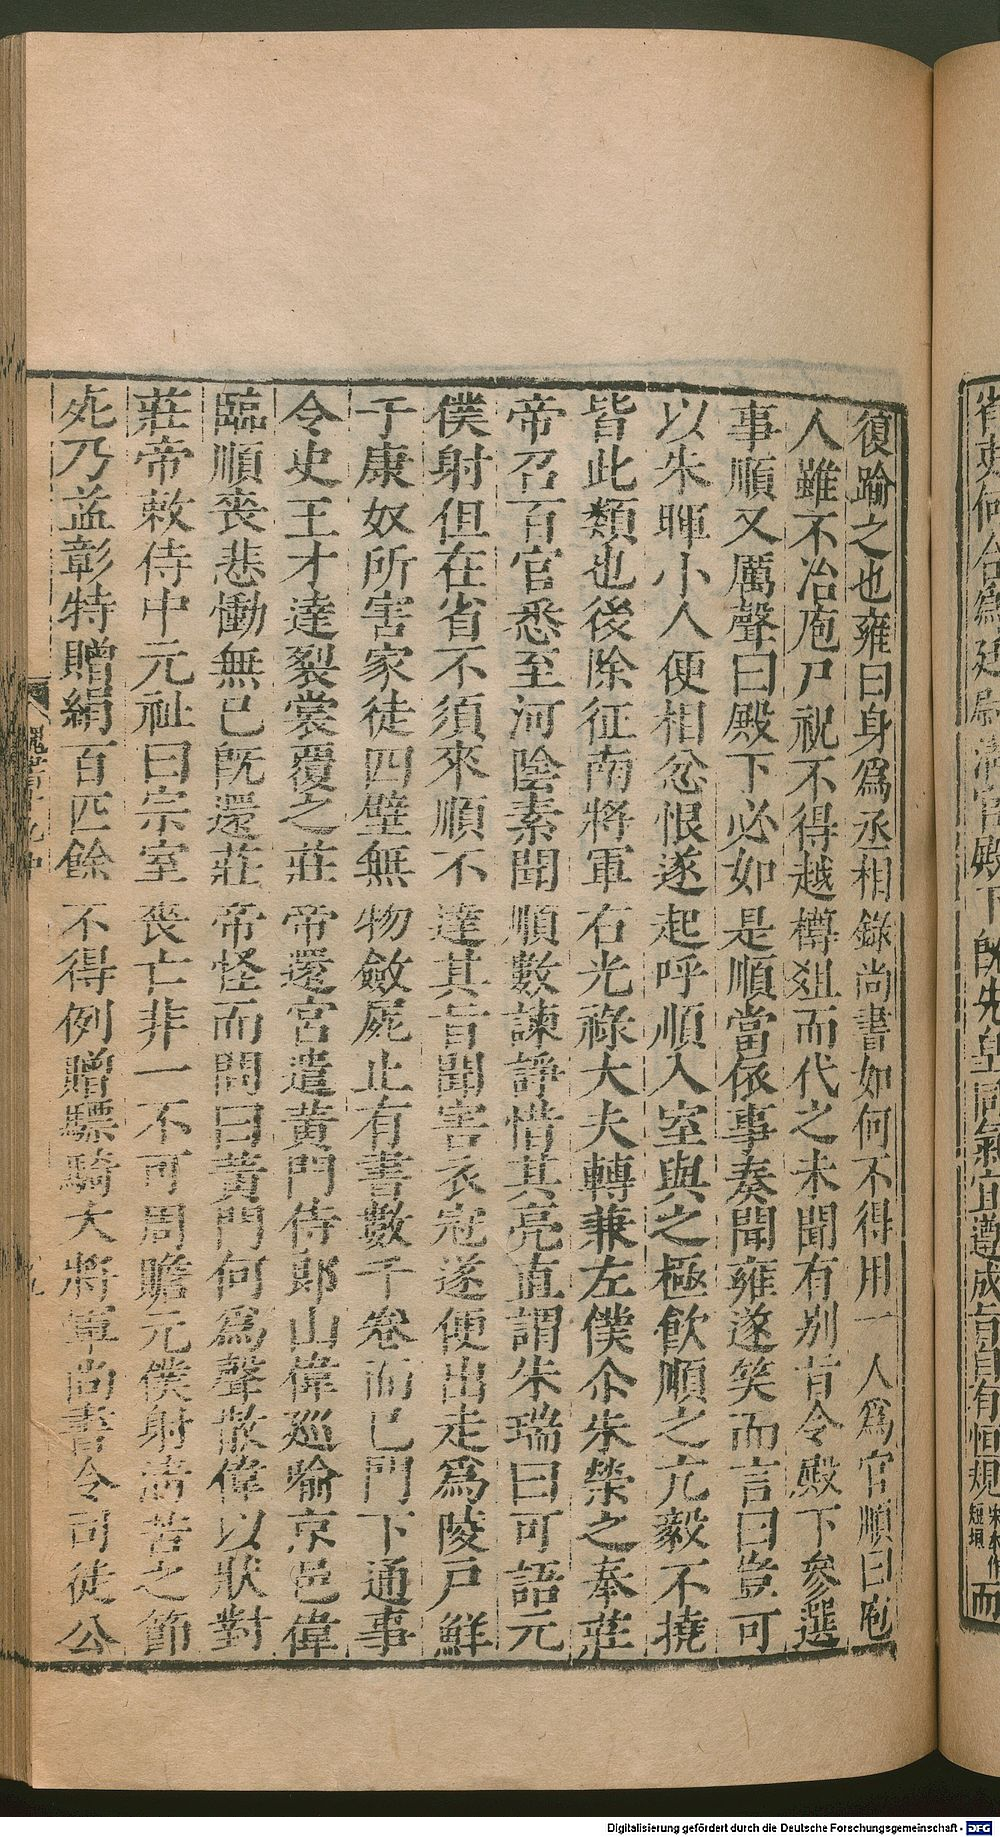 復踰之也雍曰身爲丞相錄尚書如何不得用一人爲官順曰庖
人雖不冶庖尸祝不得越樽俎而代之未聞有别旨令殿下參選
事順又厲聲曰殿下必如是順當依事奏聞雍遂笑而言曰豈可
以朱暉小人便相忿恨遂起呼順入室與之極飲順之亢毅不撓
皆此類也後除征南將軍右光祿大夫轉兼左僕尒朱榮之奉莊
帝召百官悉至河陰素聞順數諫諍惜其亮直謂朱瑞曰可語元
僕射但在省不須來順不達其旨聞害衣冠遂便出走爲陵戶鮮
于康奴所害家徒四壁無物斂屍止有書數千卷而已門下通事
令史王才達裂裳覆之莊帝還宮遣黃門侍郎山偉巡喻京邑偉
臨順喪悲慟無已旣還莊帝怪而問曰黃門何爲聲散偉以狀對
莊帝敕侍中元祉曰宗室喪亡非一不可周贍元僕射淸苦之節
死乃益彰特贈絹百匹餘不得例贈驃騎大將軍尚書令司徒公
魏書十九中
九
何合爲廷尉淸官殿下旣先皇同氣宜遵成旨自有恒規
短垣
而
Digitalisierung gefördert durch die Deutsche Forschungsgemeinschaft - DFG